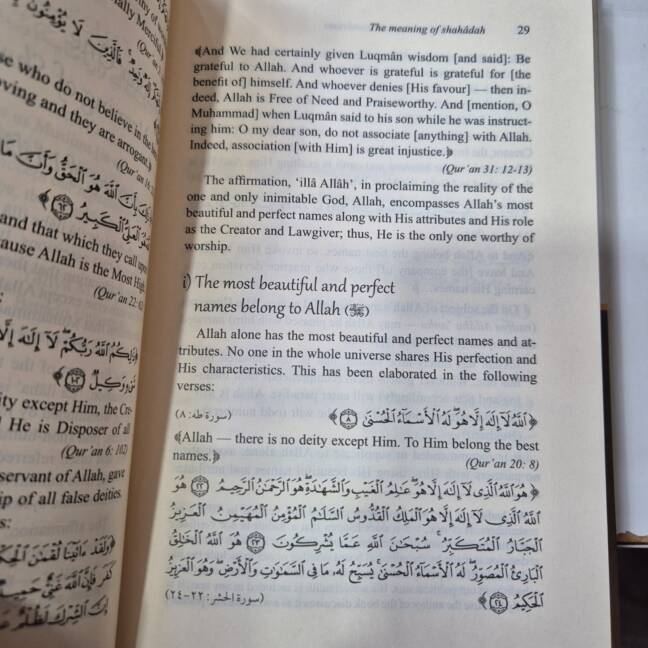 ity of
ially Merciful
(Qur'an
se who do not believe in the
ving and they are arrogant.﴾
(Qur'an
بِأَنَّ ٱللَّهَ هُوَ ٱلْحَقُّ وَأَنَّ مَا
هُوَ ٱلْعَلِىُّ ٱلْكَبِيرُ ۝٦٢﴾
and that which they call upon
cause Allah is the Most High,
(Qur'an 22:
ٱللَّهُ رَبُّكُمْ ۖ لَآ إِلَٰهَ إِلَّا
وَكِيلٌ ۝١٠٢
ity except Him, the Cre-
d He is Disposer of all
(Qur'an 6: 102)
servant of Allah, gave
ip of all false deities.
s:
﴿وَلَقَدْ ءَاتَيْنَا لُقْمَٰنَ ٱلْحِكْ
كَفَرَ فَإِنَّ ٱللَّهَ غَنِىٌّ حَمِيدٌ
إِنَّ ٱلشِّرْكَ لَظُلْمٌ
The meaning of shahâdah 29
﴾And We had certainly given Luqmân wisdom [and said]: Be
grateful to Allah. And whoever is grateful is grateful for [the
benefit of] himself. And whoever denies [His favour] — then in-
deed, Allah is Free of Need and Praiseworthy. And [mention, O
Muhammad] when Luqmân said to his son while he was instruct-
ing him: O my dear son, do not associate [anything] with Allah.
Indeed, association [with Him] is great injustice.﴿
(Qur'an 31: 12-13)
The affirmation, 'illâ Allâh', in proclaiming the reality of the
one and only inimitable God, Allah, encompasses Allah's most
beautiful and perfect names along with His attributes and His role
as the Creator and Lawgiver; thus, He is the only one worthy of
worship.
i) The most beautiful and perfect
names belong to Allah (ﷻ)
Allah alone has the most beautiful and perfect names and at-
tributes. No one in the whole universe shares His perfection and
His characteristics. This has been elaborated in the following
verses:
﴿ٱللَّهُ لَآ إِلَٰهَ إِلَّا هُوَ ۖ لَهُ ٱلْأَسْمَآءُ ٱلْحُسْنَىٰ ۝٨﴾ (سورة طه: ٨)
﴾Allah — there is no deity except Him. To Him belong the best
names.﴿ (Qur'an 20: 8)
﴿هُوَ ٱللَّهُ ٱلَّذِى لَآ إِلَٰهَ إِلَّا هُوَ ۖ عَٰلِمُ ٱلْغَيْبِ وَٱلشَّهَٰدَةِ ۖ هُوَ ٱلرَّحْمَٰنُ ٱلرَّحِيمُ ۝٢٢ هُوَ
ٱللَّهُ ٱلَّذِى لَآ إِلَٰهَ إِلَّا هُوَ ٱلْمَلِكُ ٱلْقُدُّوسُ ٱلسَّلَٰمُ ٱلْمُؤْمِنُ ٱلْمُهَيْمِنُ ٱلْعَزِيزُ
ٱلْجَبَّارُ ٱلْمُتَكَبِّرُ ۚ سُبْحَٰنَ ٱللَّهِ عَمَّا يُشْرِكُونَ ۝٢٣ هُوَ ٱللَّهُ ٱلْخَٰلِقُ
ٱلْبَارِئُ ٱلْمُصَوِّرُ ۖ لَهُ ٱلْأَسْمَآءُ ٱلْحُسْنَىٰ ۚ يُسَبِّحُ لَهُۥ مَا فِى ٱلسَّمَٰوَٰتِ وَٱلْأَرْضِ ۖ وَهُوَ ٱلْعَزِيزُ
ٱلْحَكِيمُ ۝٢٤﴾ (سورة الحشر: ٢٢-٢٤)